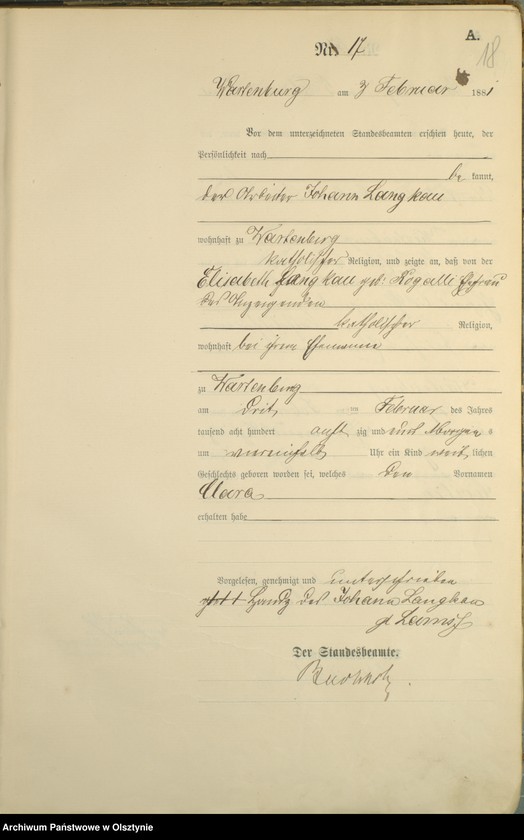 A.
18
No. 17
Wartenburg am 3 Februar 1881
Vor dem unterzeichneten Standesbeamten erschien heute, der
Persönlichkeit nach
be kannt,
der Arbeiter Johann Langkau
wohnhaft zu Wartenburg
katholischer Religion, und zeigte an, daß von der
Elisabeth Langkau geb. Rogalli Ehefrau
des Anzeigenden
katholischer Religion,
wohnhaft bei ihrem Ehemanne
zu Wartenburg
am Februar des Jahres
tausend acht hundert acht zig und Morgens
um Uhr ein Kind weib lichen
Geschlechts geboren worden sei, welches den Vornamen
Clara
erhalten habe
Vorgelesen, genehmigt und unterschrieben
des Johann Langkau
Der Standesbeamte.